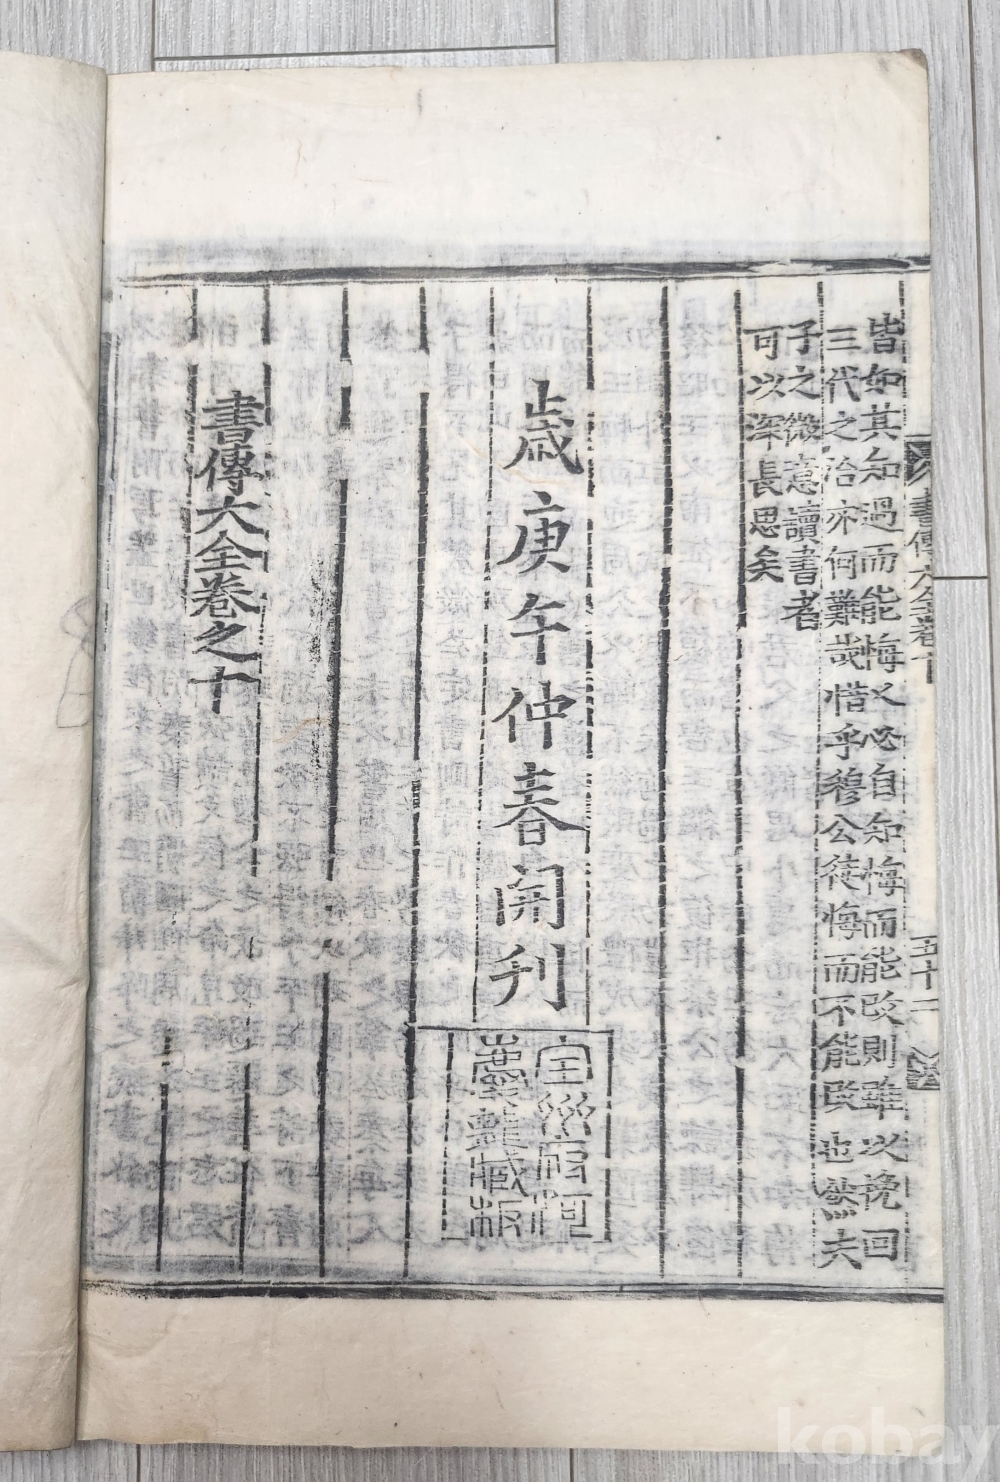 書傳大全卷十
五十二
皆如其知過而能悔又必自知悔而能改則雖以挽回
三代之治亦何難哉惜乎穆公徒悔而不能改也然夫
子之微意讀書者
可以深長思矣
歲庚午仲春開刊
全州府河
慶龍藏板
書傳大全卷之十
kobay